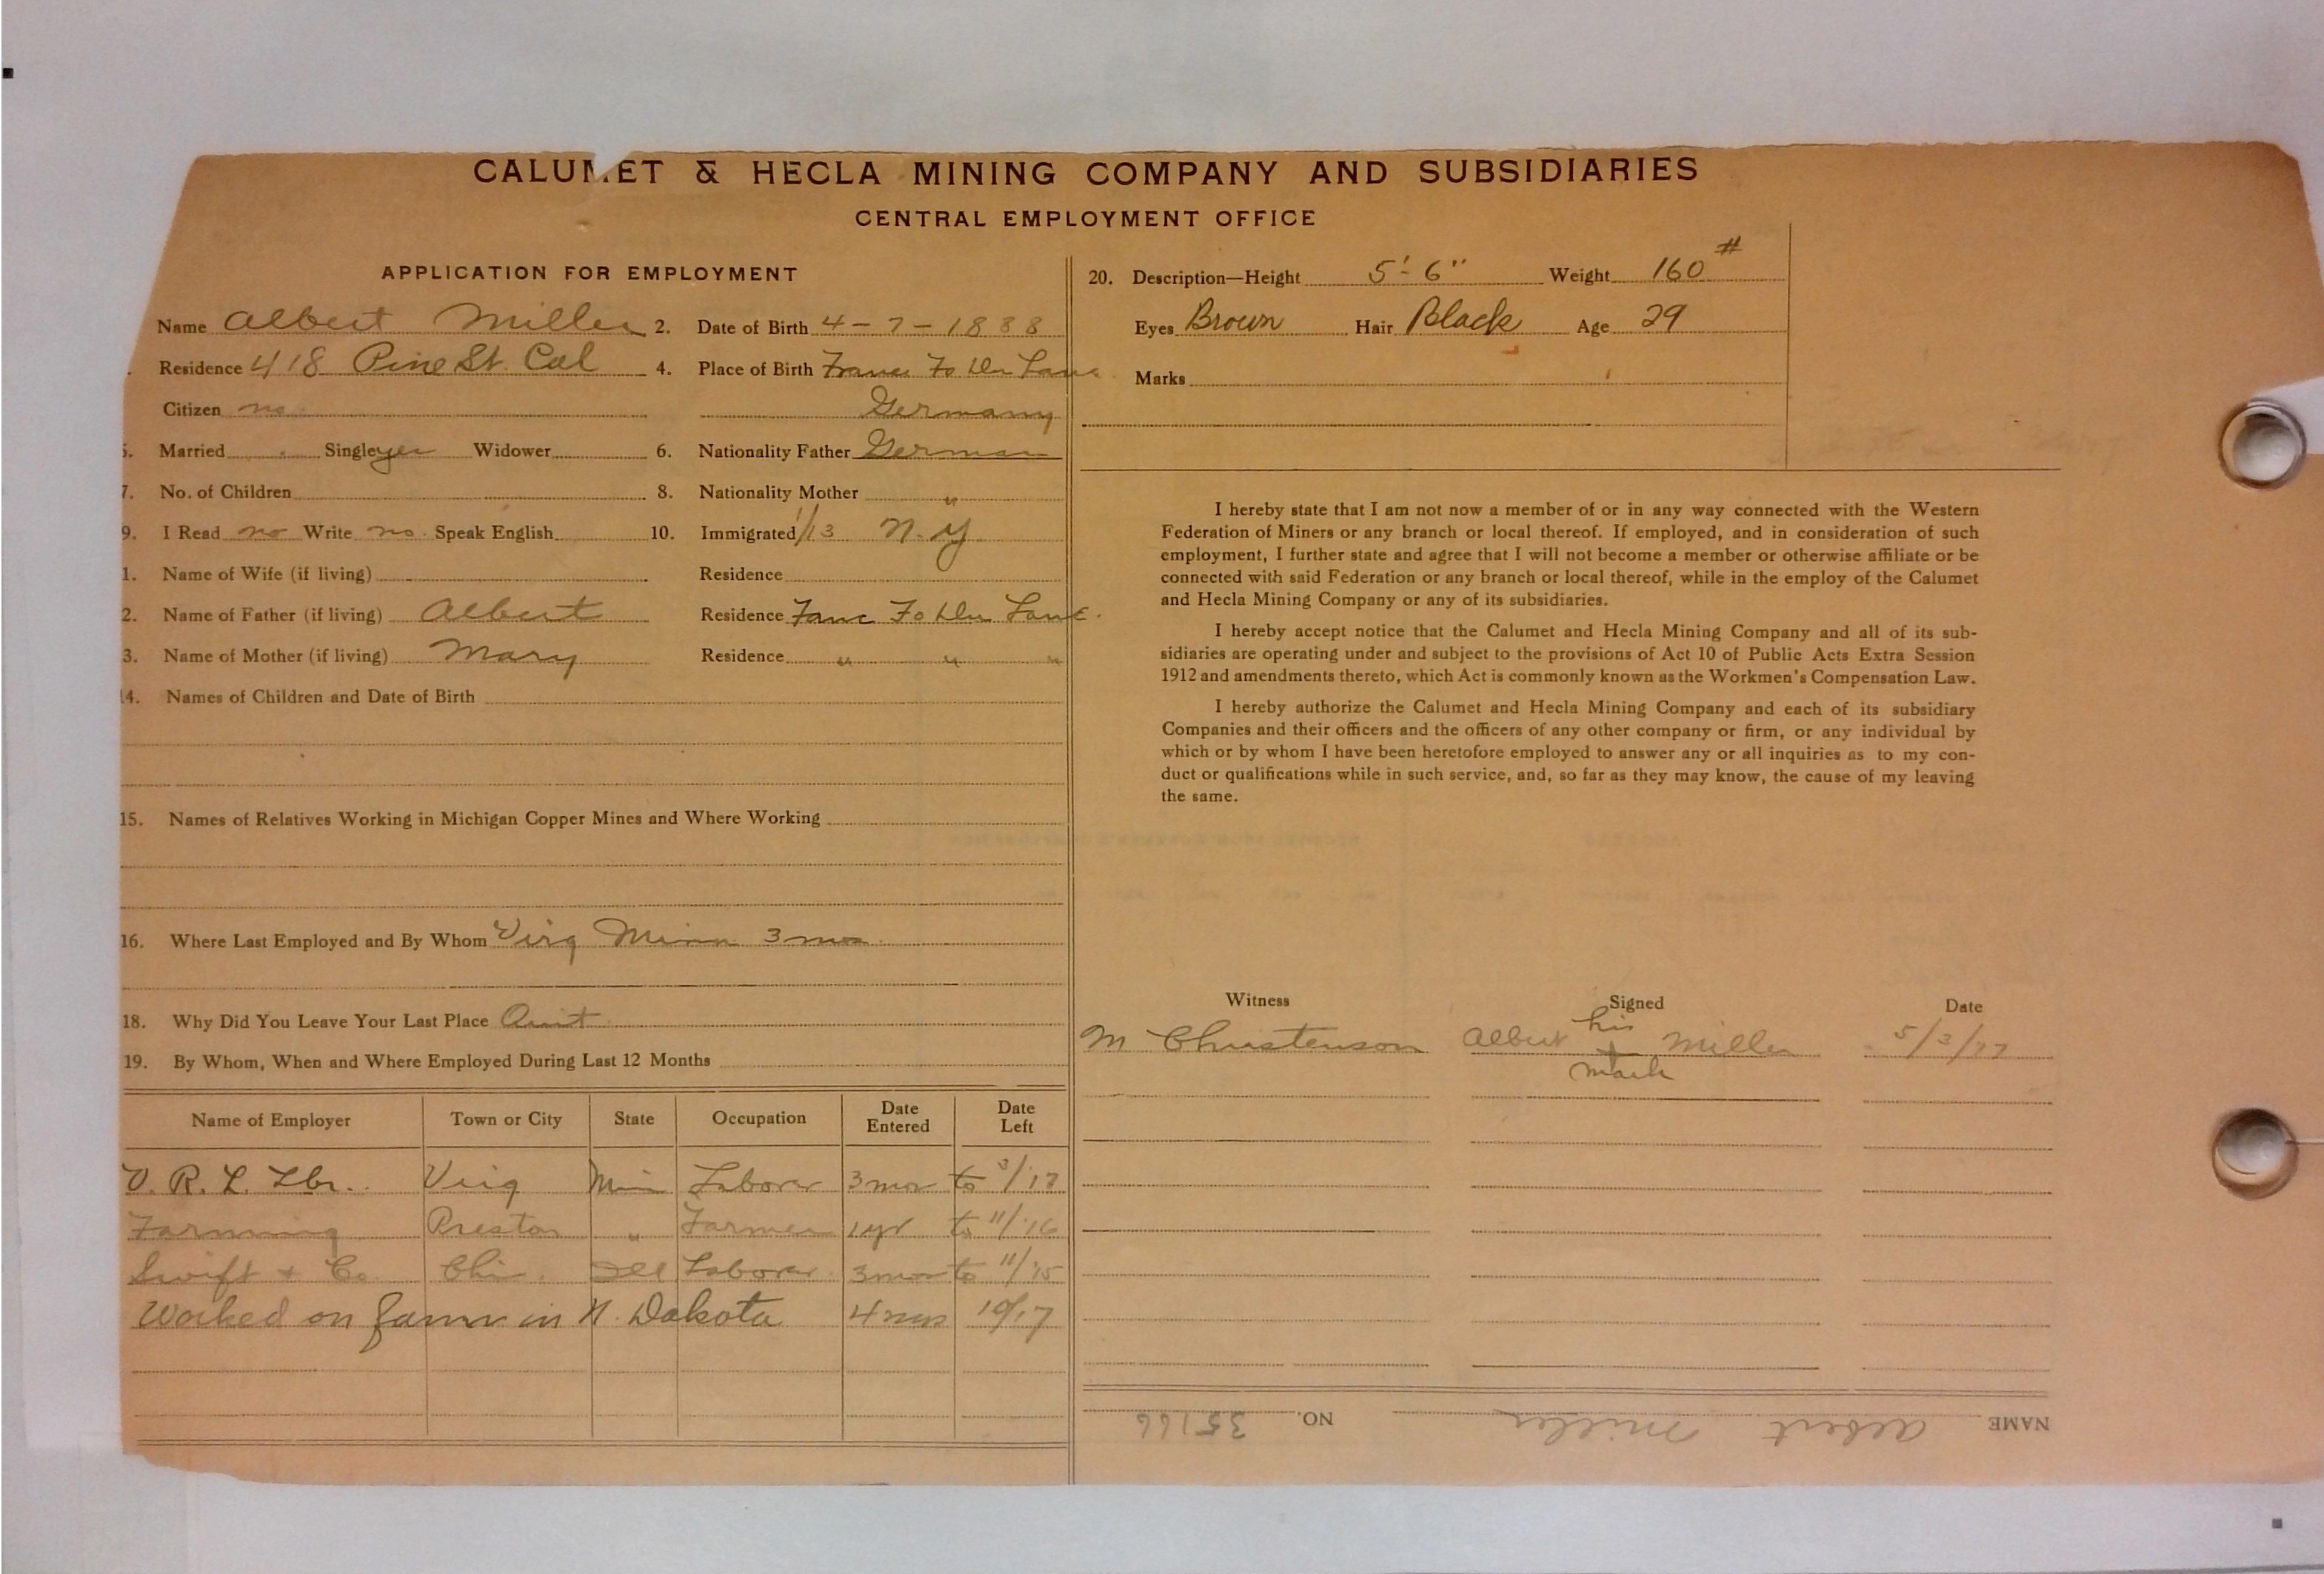 CALUMET & HECLA MINING COMPANY AND SUBSIDIARIES
CENTRAL EMPLOYMENT OFFICE
APPLICATION FOR EMPLOYMENT
Name Albert Miller 2. Date of Birth 4-7-1888
Residence 418 Pine St. Cal 4. Place of Birth Fo Lane
Citizen no Germany
5. Married Single yes Widower 6. Nationality Father German
7. No. of Children 8. Nationality Mother "
9. I Read no Write no. Speak English 10. Immigrated 1/13 N.Y
1. Name of Wife (if living) Residence
2. Name of Father (if living) Albert Residence Fo
3. Name of Mother (if living) Mary Residence " " "
14. Names of Children and Date of Birth
15. Names of Relatives Working in Michigan Copper Mines and Where Working
16. Where Last Employed and By Whom Virg Minn 3 mos
18. Why Did You Leave Your Last Place Quit
19. By Whom, When and Where Employed During Last 12 Months
Name of Employer Town or City State Occupation Date Entered Date Left
V. R. L. Lbr. Virg Min Laborer 3 mos to 3/17
Farming Preston " Farmer 1 yr to 11/16
Swift + Co Chi. Ill Laborer 3 mos to 11/15
Worked on farm in N. Dakota 4 mos 10/17
20. Description—Height 5'-6" Weight 160#
Eyes Brown Hair Black Age 29
Marks
I hereby state that I am not now a member of or in any way connected with the Western
Federation of Miners or any branch or local thereof. If employed, and in consideration of such
employment, I further state and agree that I will not become a member or otherwise affiliate or be
connected with said Federation or any branch or local thereof, while in the employ of the Calumet
and Hecla Mining Company or any of its subsidiaries.
I hereby accept notice that the Calumet and Hecla Mining Company and all of its sub-
sidiaries are operating under and subject to the provisions of Act 10 of Public Acts Extra Session
1912 and amendments thereto, which Act is commonly known as the Workmen's Compensation Law.
I hereby authorize the Calumet and Hecla Mining Company and each of its subsidiary
Companies and their officers and the officers of any other company or firm, or any individual by
which or by whom I have been heretofore employed to answer any or all inquiries as to my con-
duct or qualifications while in such service, and, so far as they may know, the cause of my leaving
the same.
Witness Signed Date
M Christenson Albert his + mark Miller 5/3/17
NAME Albert Miller NO. 35166